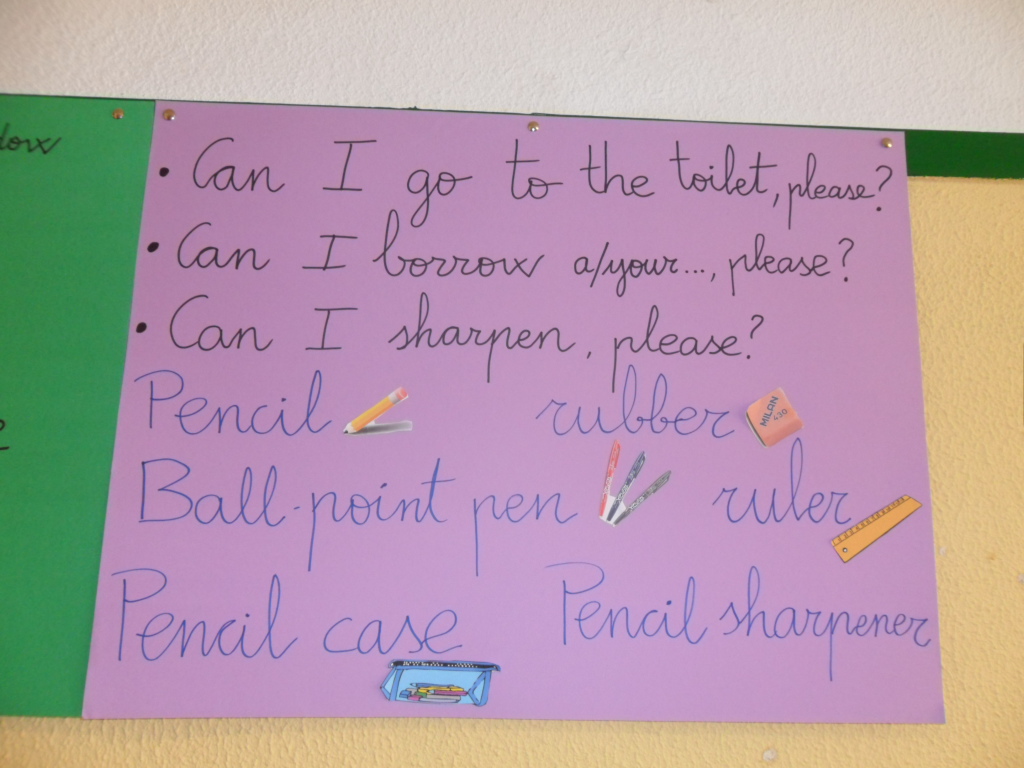 • Can I go to the toilet, please?
• Can I borrow a/your..., please?
• Can I sharpen, please?
Pencil rubber
MILAN
430
Ball-point pen ruler
Pencil case Pencil sharpener